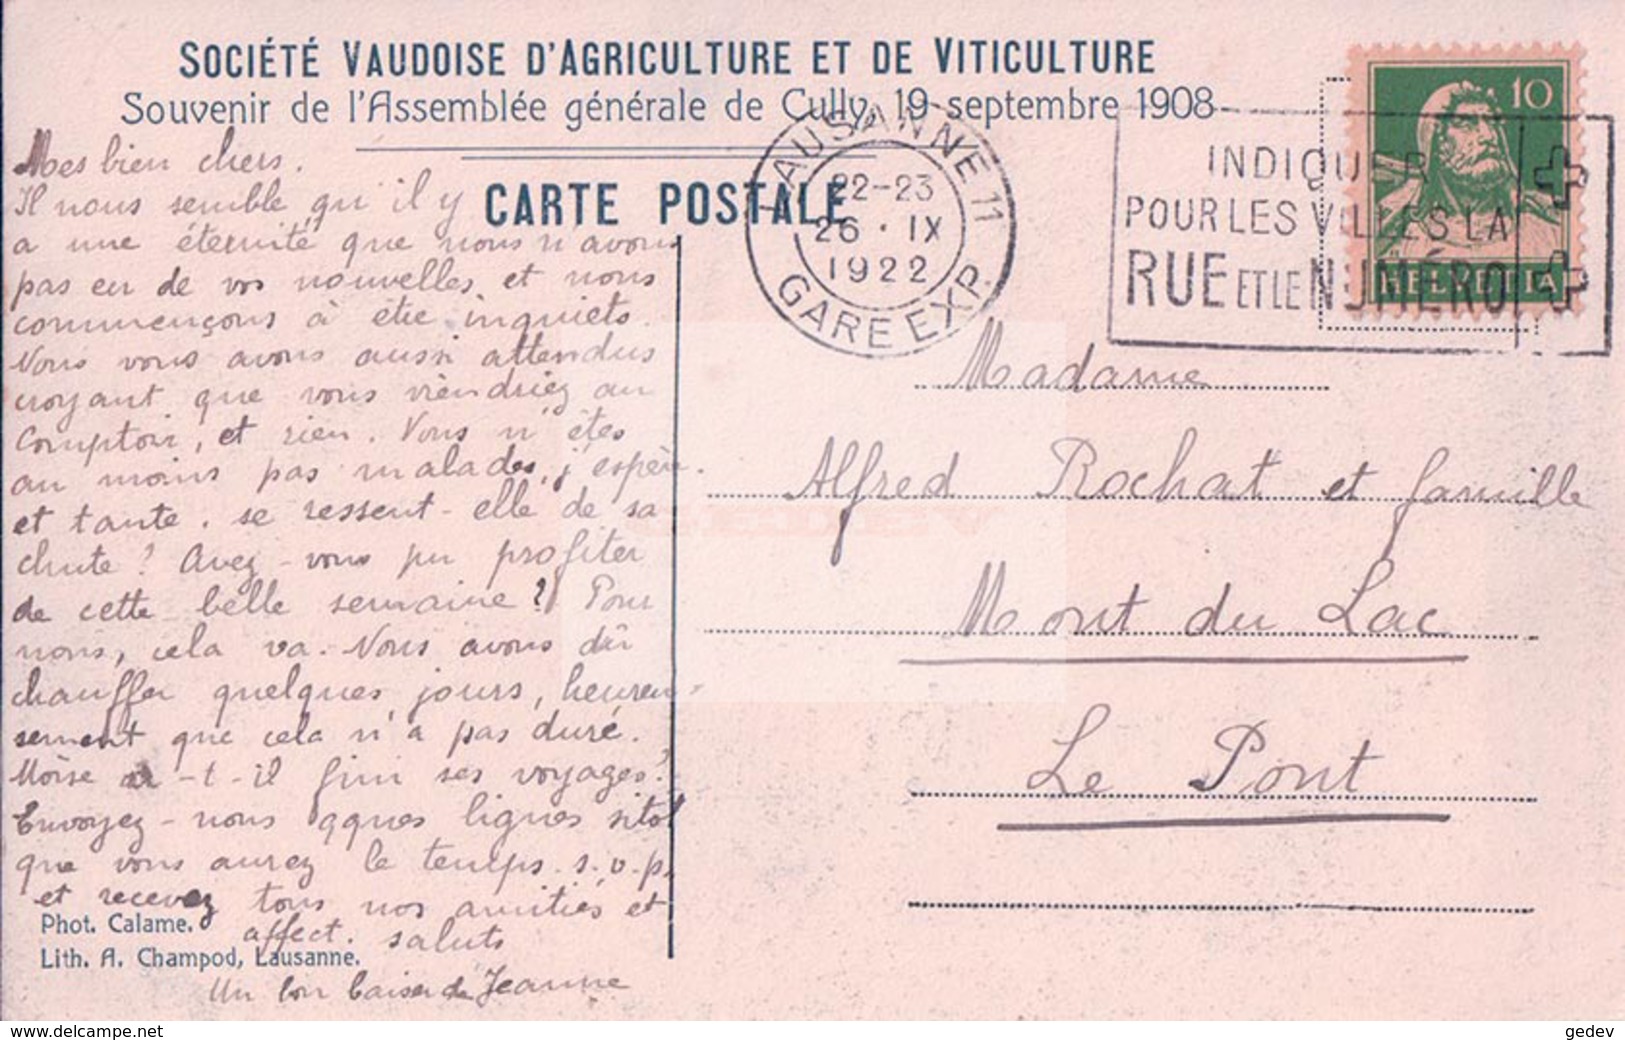 SOCIÉTÉ VAUDOISE D'AGRICULTURE ET DE VITICULTURE
Souvenir de l'Assemblée générale de Cully, 19 septembre 1908
CARTE POSTALE
LAUSANNE 11
22-23
26 · IX
1922
GARE EXP.
INDIQUER
POUR LES VILLES LA
RUE ET LE NUMÉRO
10
HELVETIA
Mes bien chers.
Il nous semble qu'il y
a une éternité que nous n'avons
pas eu de vos nouvelles et nous
commençons à être inquiets.
Nous vous avons aussi attendus
croyant que vous viendriez au
Comptoir, et rien. Vous n'êtes
au moins pas malades, j'espère.
et tante. se ressent-elle de sa
chute? Avez-vous pu profiter
de cette belle semaine? Pour
nous, cela va. Nous avons dû
chauffer quelques jours, heureu-
sement que cela n'a pas duré.
Moïse a-t-il fini ses voyages?
Envoyez-nous qques lignes sitôt
que vous aurez le temps. s.v.p.
et recevez tous nos amitiés et
affect. saluts
Un bon baiser de Jeanne
Phot. Calame.
Lith. A. Champod, Lausanne.
Madame
Alfred Rochat et famille
Mont du Lac
Le Pont
www.delcampe.net
gedev